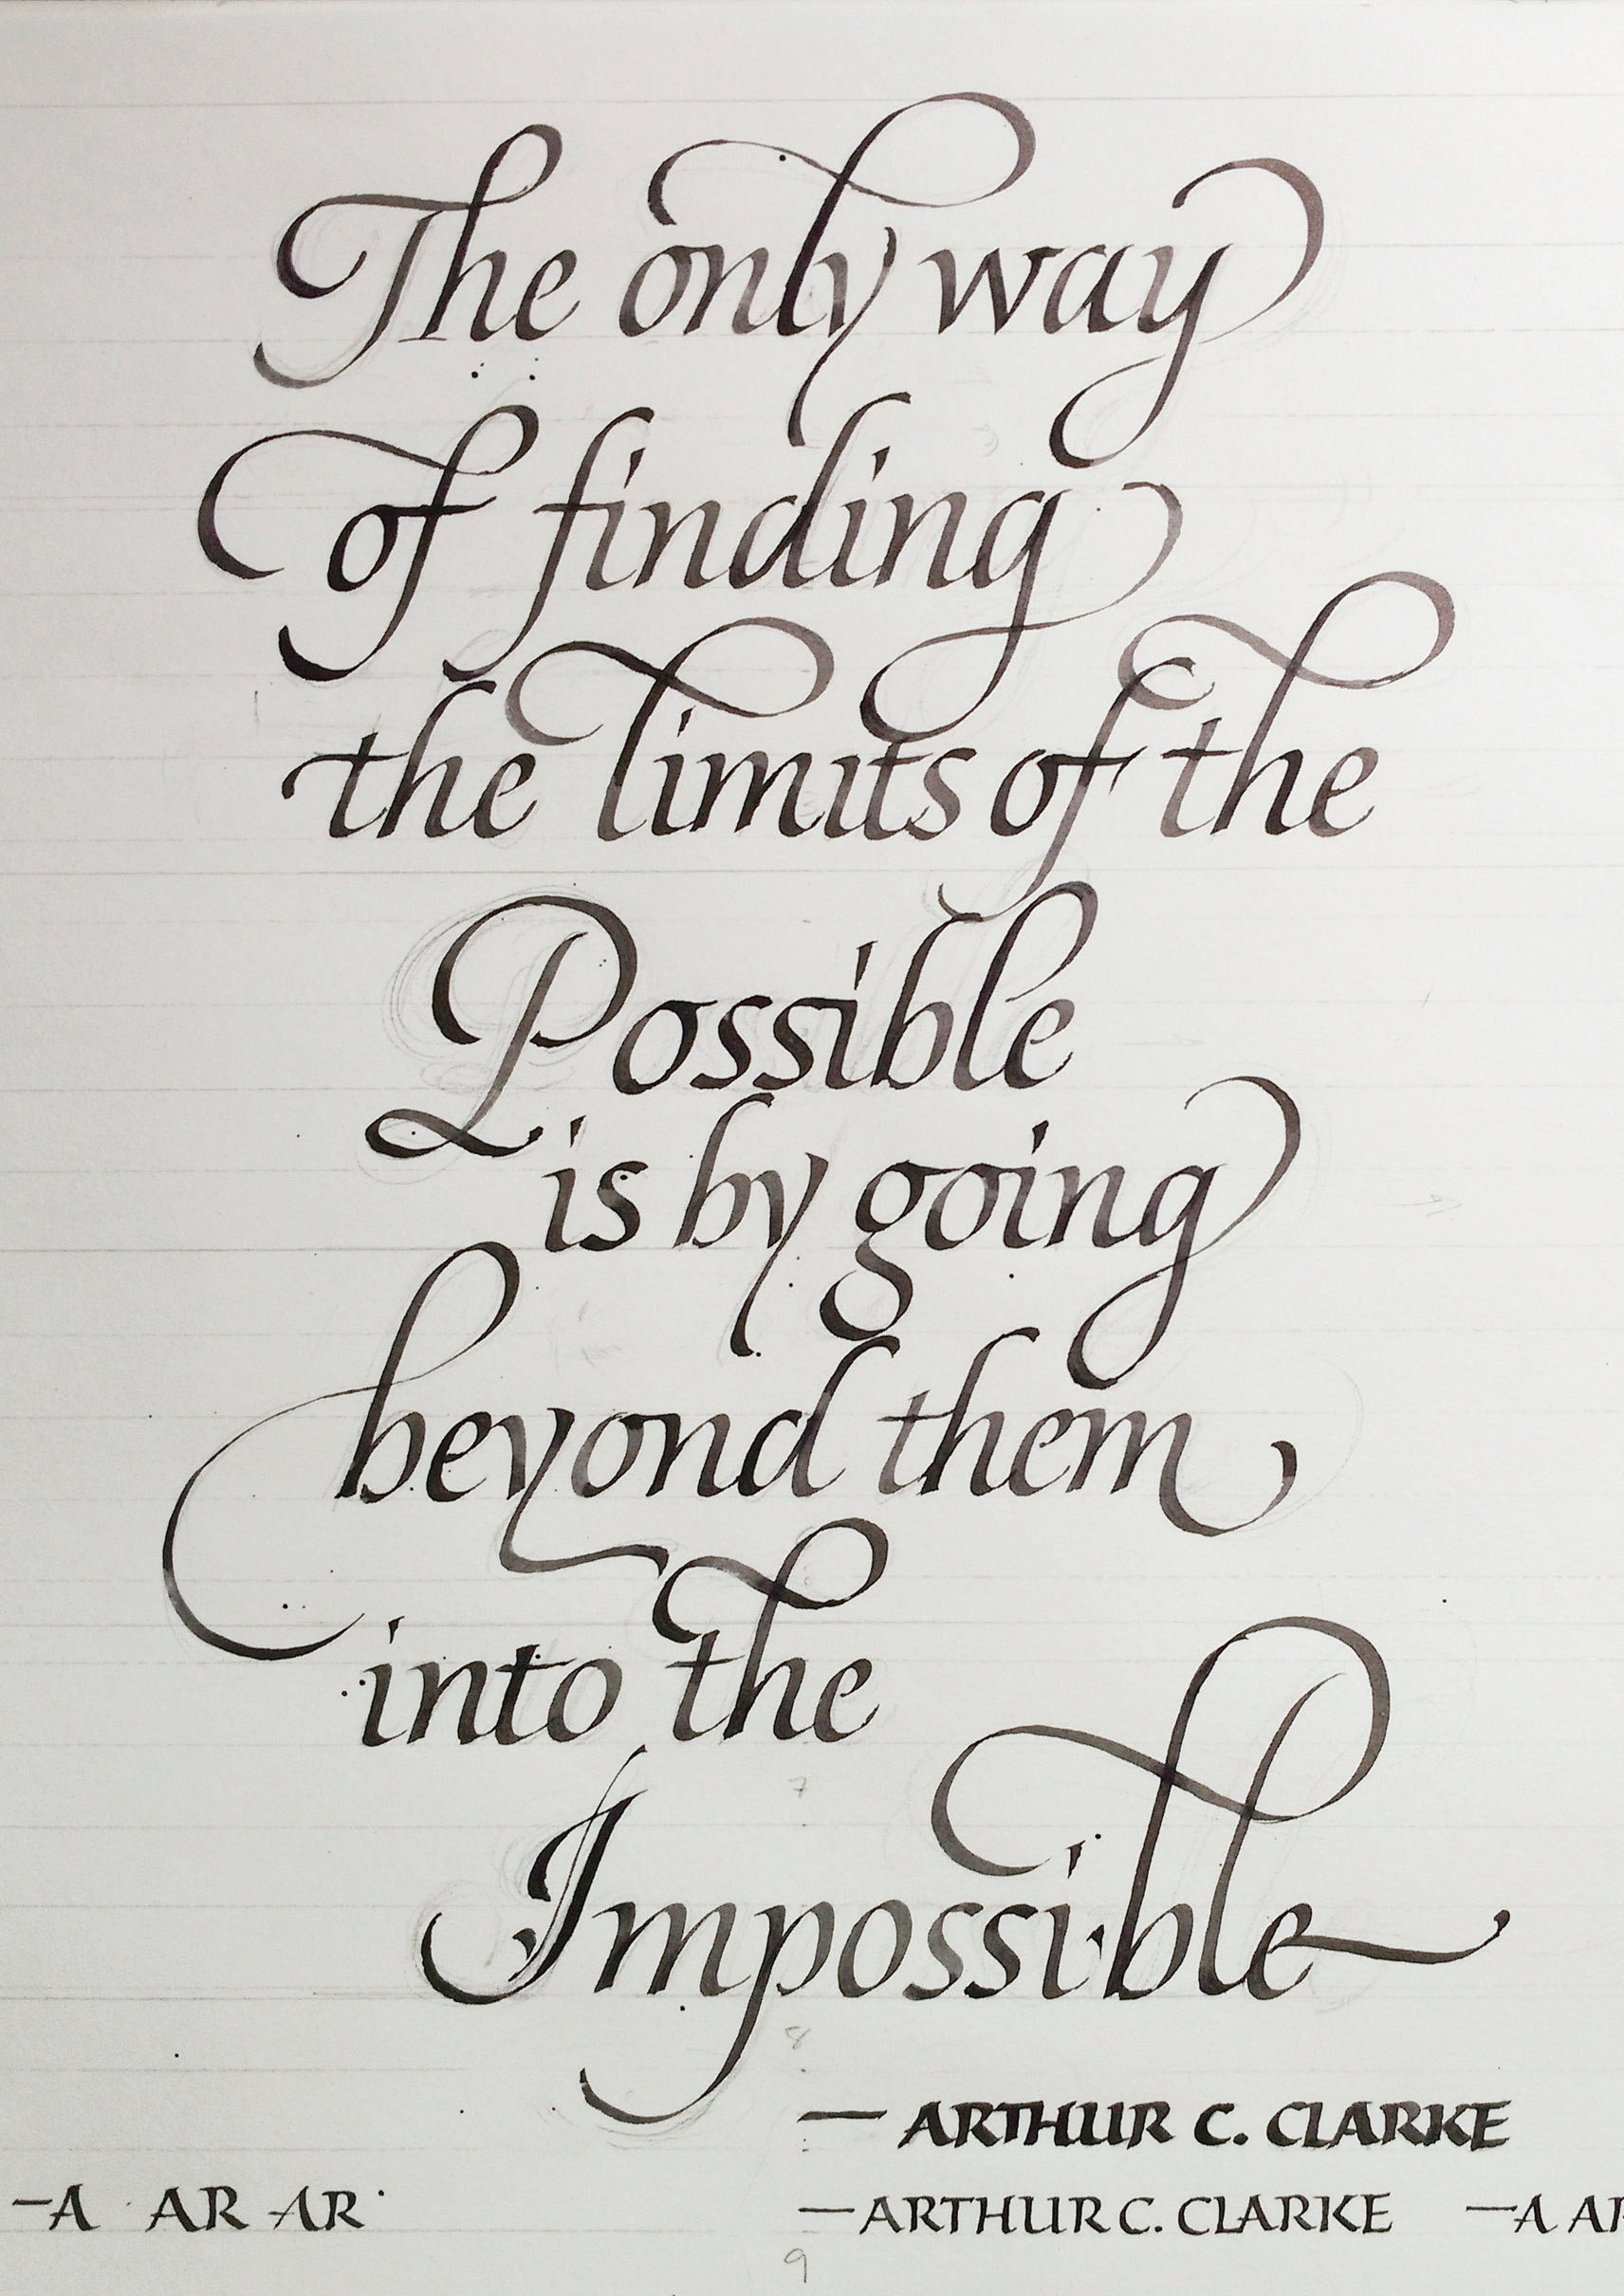 The only way
of finding
the limits of the
Possible
is by going
beyond them
into the
7
Impossible
8
— ARTHUR C. CLARKE
—A AR AR
—ARTHUR C. CLARKE
—A AR
9